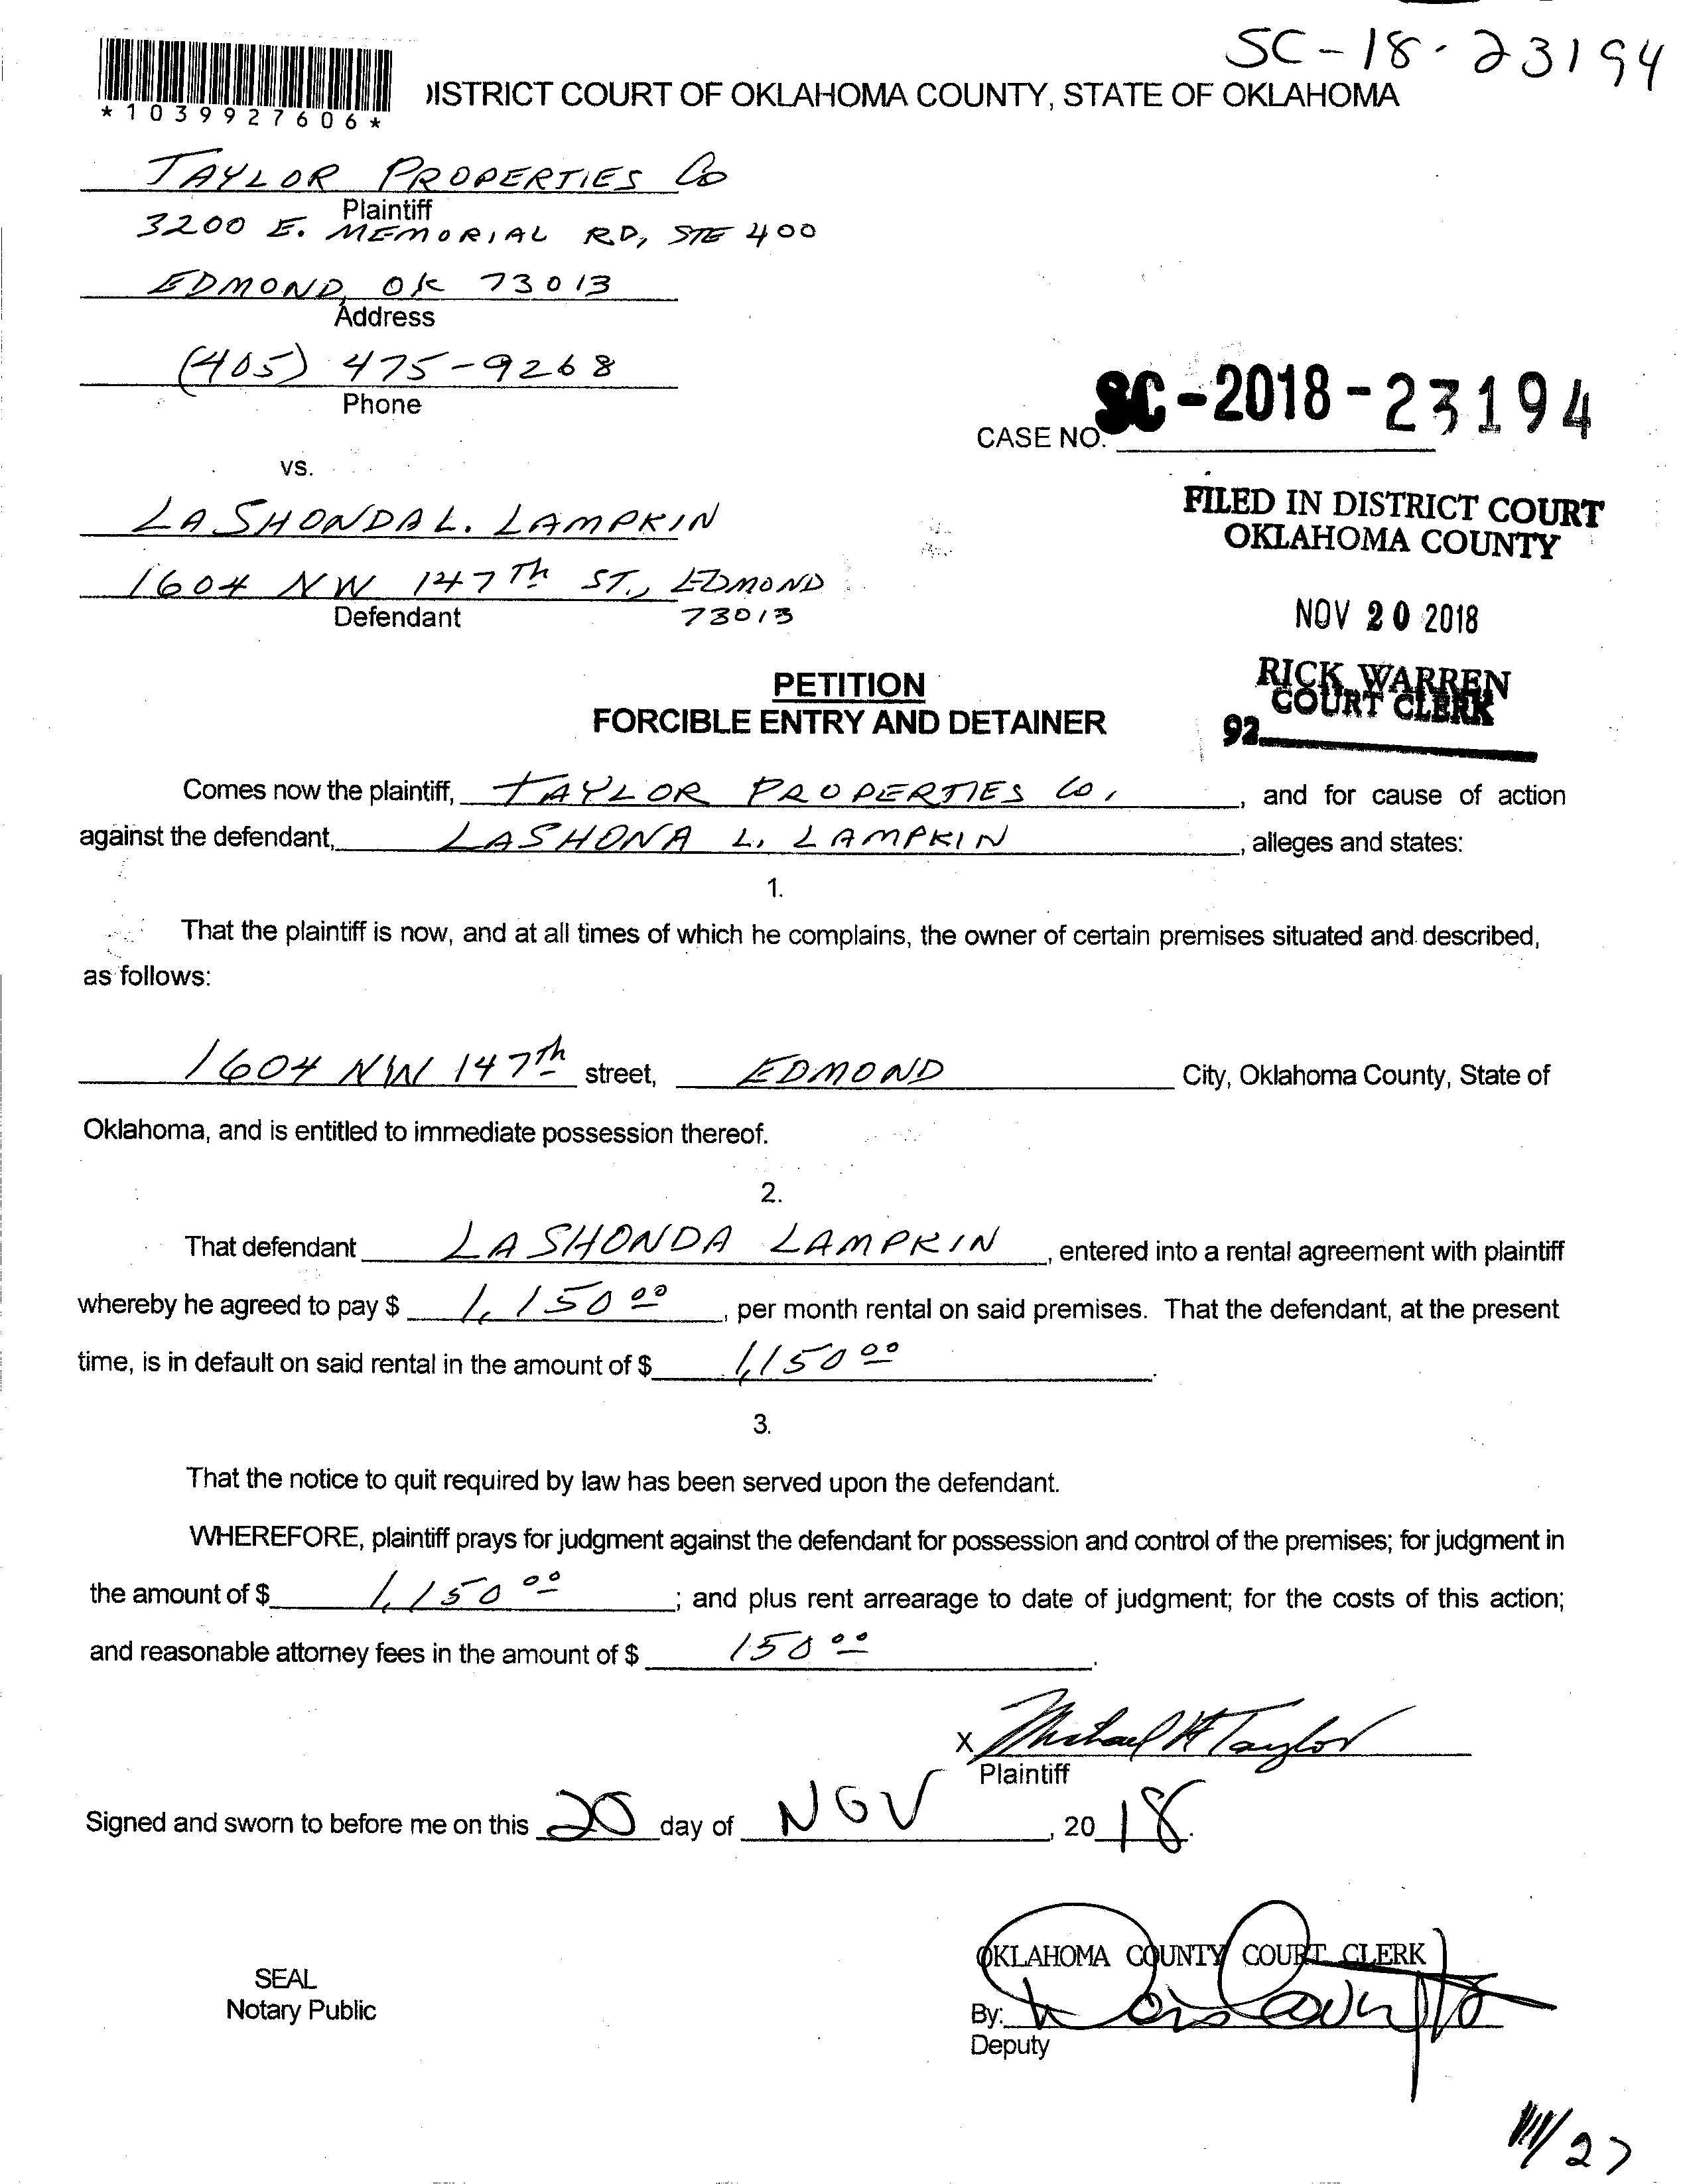 SC-18-23194
*1039927606*
DISTRICT COURT OF OKLAHOMA COUNTY, STATE OF OKLAHOMA
TAYLOR PROPERTIES Co
Plaintiff
3200 E. MEMORIAL RD, STE 400
EDMOND, OK 73013
Address
(405) 475-9268
Phone
CASE NO. SC-2018-23194
vs.
LASHONDA L. LAMPKIN
1604 NW 147Th ST., EDMOND
Defendant 73013
FILED IN DISTRICT COURT
OKLAHOMA COUNTY
NOV 20 2018
RICK WARREN
COURT CLERK
92
PETITION
FORCIBLE ENTRY AND DETAINER
Comes now the plaintiff, TAYLOR PROPERTIES Co, , and for cause of action
against the defendant, LASHONA L. LAMPKIN , alleges and states:
1.
That the plaintiff is now, and at all times of which he complains, the owner of certain premises situated and described,
as follows:
1604 NW 147th street, EDMOND City, Oklahoma County, State of
Oklahoma, and is entitled to immediate possession thereof.
2.
That defendant LASHONDA LAMPKIN , entered into a rental agreement with plaintiff
whereby he agreed to pay $ 1,150 00 , per month rental on said premises. That the defendant, at the present
time, is in default on said rental in the amount of $ 1,150 00 .
3.
That the notice to quit required by law has been served upon the defendant.
WHEREFORE, plaintiff prays for judgment against the defendant for possession and control of the premises; for judgment in
the amount of $ 1,150 00 ; and plus rent arrearage to date of judgment; for the costs of this action;
and reasonable attorney fees in the amount of $ 150 00 .
X Michael H Taylor
Plaintiff
Signed and sworn to before me on this 20 day of NOV , 20 18.
OKLAHOMA COUNTY COURT CLERK
SEAL
Notary Public
By:
Deputy
27